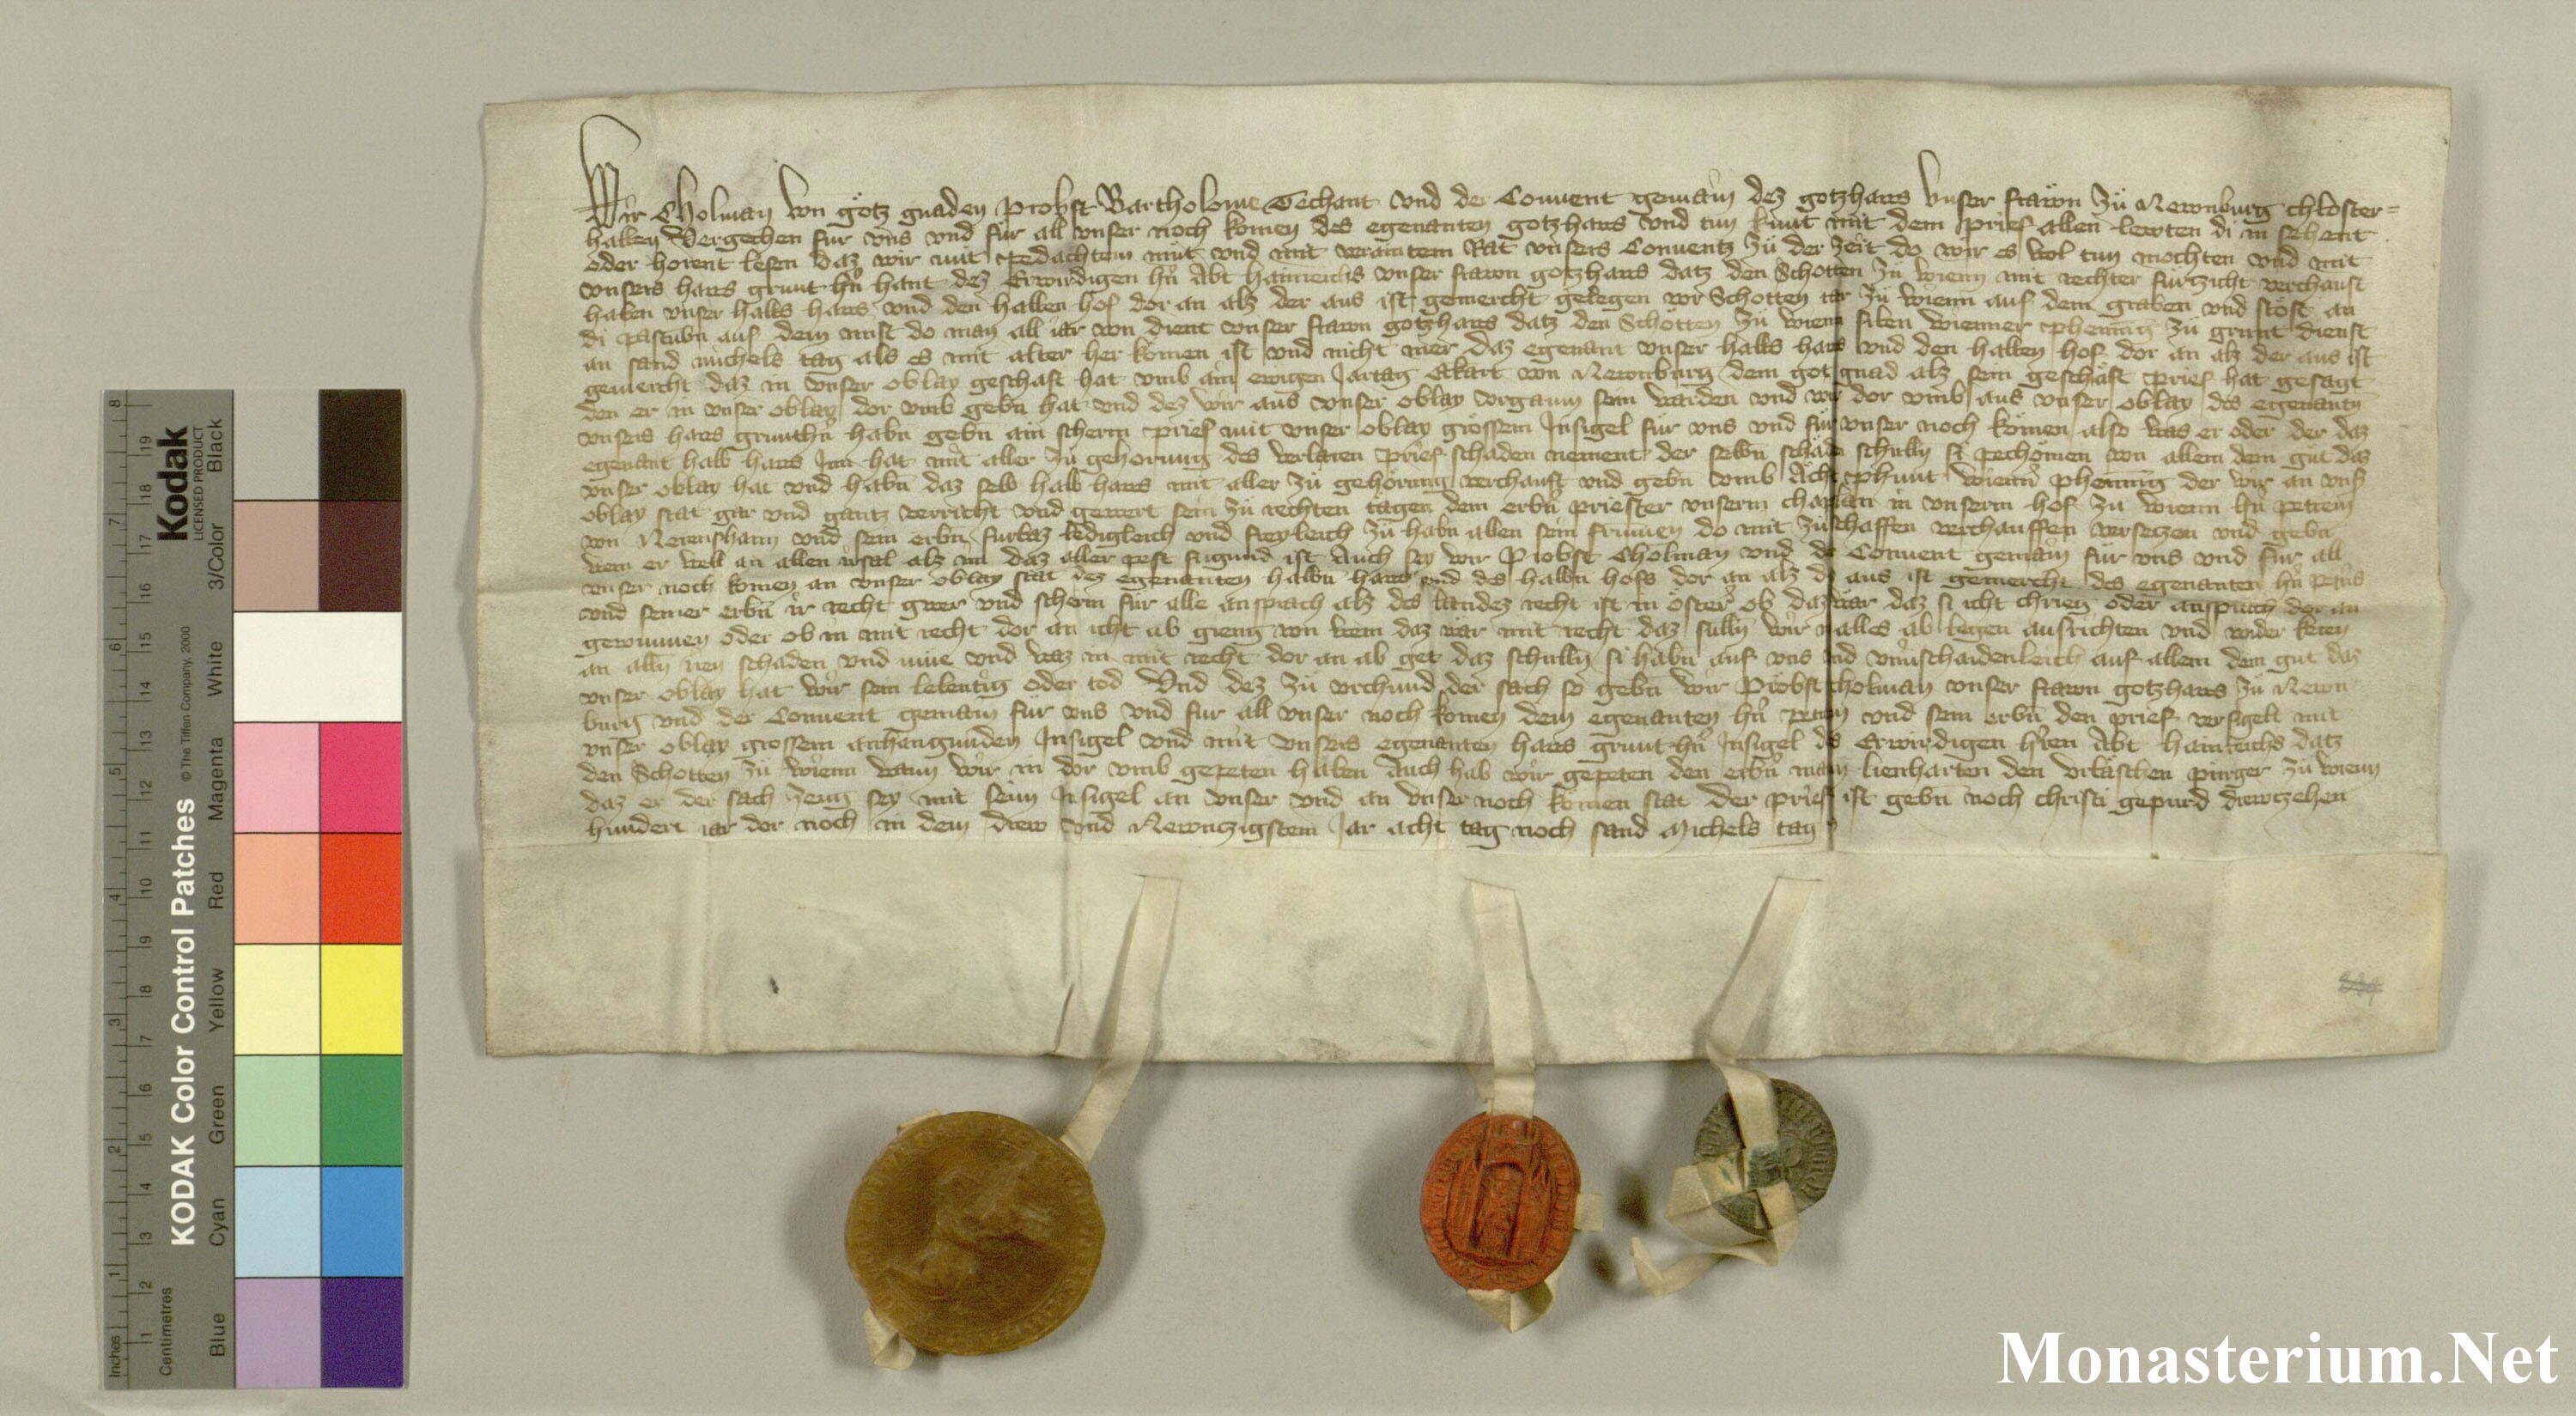 Wir Cholman von gotz gnaden Probst Bartholome Techant vnd der Conuent gemain dez gotzhaws vnser frawn zu Newnburg chloster=
halben Vergechen fur vns vnd fur all vnser noch komen des egenanten gotzhaws vnd tun kunt mit dem prief allen lewten di in sehent
oder horent lesen daz wir mit pedachtem mut vnd mit veraintem Rat vnsers Conuentz zu der zeit do wir es wol tun mochten vnd mit
vnsers haws grunt hn hant dez Erwirdigen hn Abt hainreichs vnser frawn gotzhaws datz den Schotten zu wienn mit rechter furtzicht verchauft
haben vnser halbs haws vnd den halben hof dor an alz der aus ist gemercht gelegen vor Schotten tor zu wienn auf dem graben vnd stost an
di pastubn auf dem mist do man all iar von dient vnser frawn gotzhaws datz den Schotten zu wienn siben wienner phening zu grunt dienst
an sand michels tag als es mit alter her komen ist vnd nicht mer daz egenant vnser halbs haws vnd den halben hof dor an alz der aus ist
gemercht daz in vnser oblay geschaft hat vmb ain ewigen Jartag Ekart von Newnburg dem got gnad alz sein geschäft prief hat gesagt
den er in vnser oblay dor vmb gebn hat vnd dez wir aus vnser oblay vorgann sein warden vnd wir dor vmb aus vnser oblay des egenantn
vnsers haws grunthn habn gebn ain scherm prief mit vnser oblay grossem Insigel fur vns vnd fur vnser noch komen also was er oder der daz
egenant halb haws Inn hat mit aller zu gehorung des verlaren prief schaden nement der selbn schäden schulln si pechomen von allem dem gut daz
vnser oblay hat vnd habn daz selb halb haws mit aller zu gehorung verchauft vnd gebn vmb Acht phunt wienn phenning der wir an vns
oblay stat gar vnd gantz verricht vnd gewert sein zu rechten tagen dem erbn priester vnserm chaplan in vnserm hof zu wienn hn petrein
von vnd sein erbn furbaz ledigleich vnd freyleich zu habn allen sein frumen do mit zu schaffen verchauffen versetzen vnd gebn
wem er well an allen irsal alz im daz aller pest fugund ist Auch sey wir Probst Cholman vnd der Conuent gemain fur vns vnd fur all
vnser noch komen an vnser oblay stat dez egenanten halbn haws vnd des halbn hofs dor an alz der aus ist gemercht des egenanten hn petrs
vnd seiner erbn ir recht gwer vnd scherm fur alle ansprach alz des landez recht ist in Oster ob daz wär daz si icht chrieg oder ansprach dor an
gewunnen oder ob in mit recht dor an icht ab gieng von wem daz wär mit recht daz sulln wir in alles ab legen ausrichten vnd wider keren
an alln iren schaden vnd mue vnd waz in mit recht dor an ab get daz schulln si habn auf vns vnd vnuerschaidenleich auf allem dem gut daz
vnser oblay hat wir sein lebentig oder tod Vnd dez zu vrchund der sach so gebn wir Probst cholman vnser frawn gotzhaws zu Newn
burg vnd der Conuent gemain fur vns vnd fur all vnser noch komen dem egenanten hn petrein vnd sein erbn den prief versigelt mit
vnser oblay grossem anhangunden Insigel vnd mit vnsers egenanten haws grunt hn Insigel des Erwirdigen hren Abt hainreichs datz
den Schotten zu wienn wann wir in dor vmb gepeten haben Auch hab wir gepeten den erbn man lienharten den vrbätschen purger zu wienn
daz er der sach zeug sey mit seim Insigel an vnser vnd an vnser noch komen stat Der prief ist gebn noch christi gepurd drewtzehen
hundert iar dor noch in dem drew vnd Newntzigstem Jar acht tag noch sand Michels tag
KODAK Color Control Patches © The Tiffen Company, 2000
Kodak
LICENSED PRODUCT
Blue Cyan Green Yellow Red Magenta White 3/Color Black
Inches 1 2 3 4 5 6 7 8
Centimetres 1 2 3 4 5 6 7 8 9 10 11 12 13 14 15 16 17 18 19
Monasterium.Net